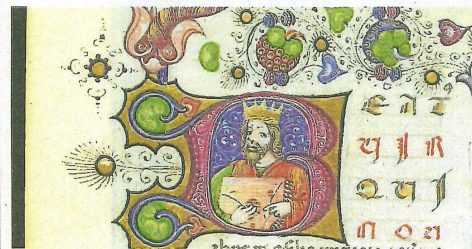 BEAT
VIR
QVI
NON